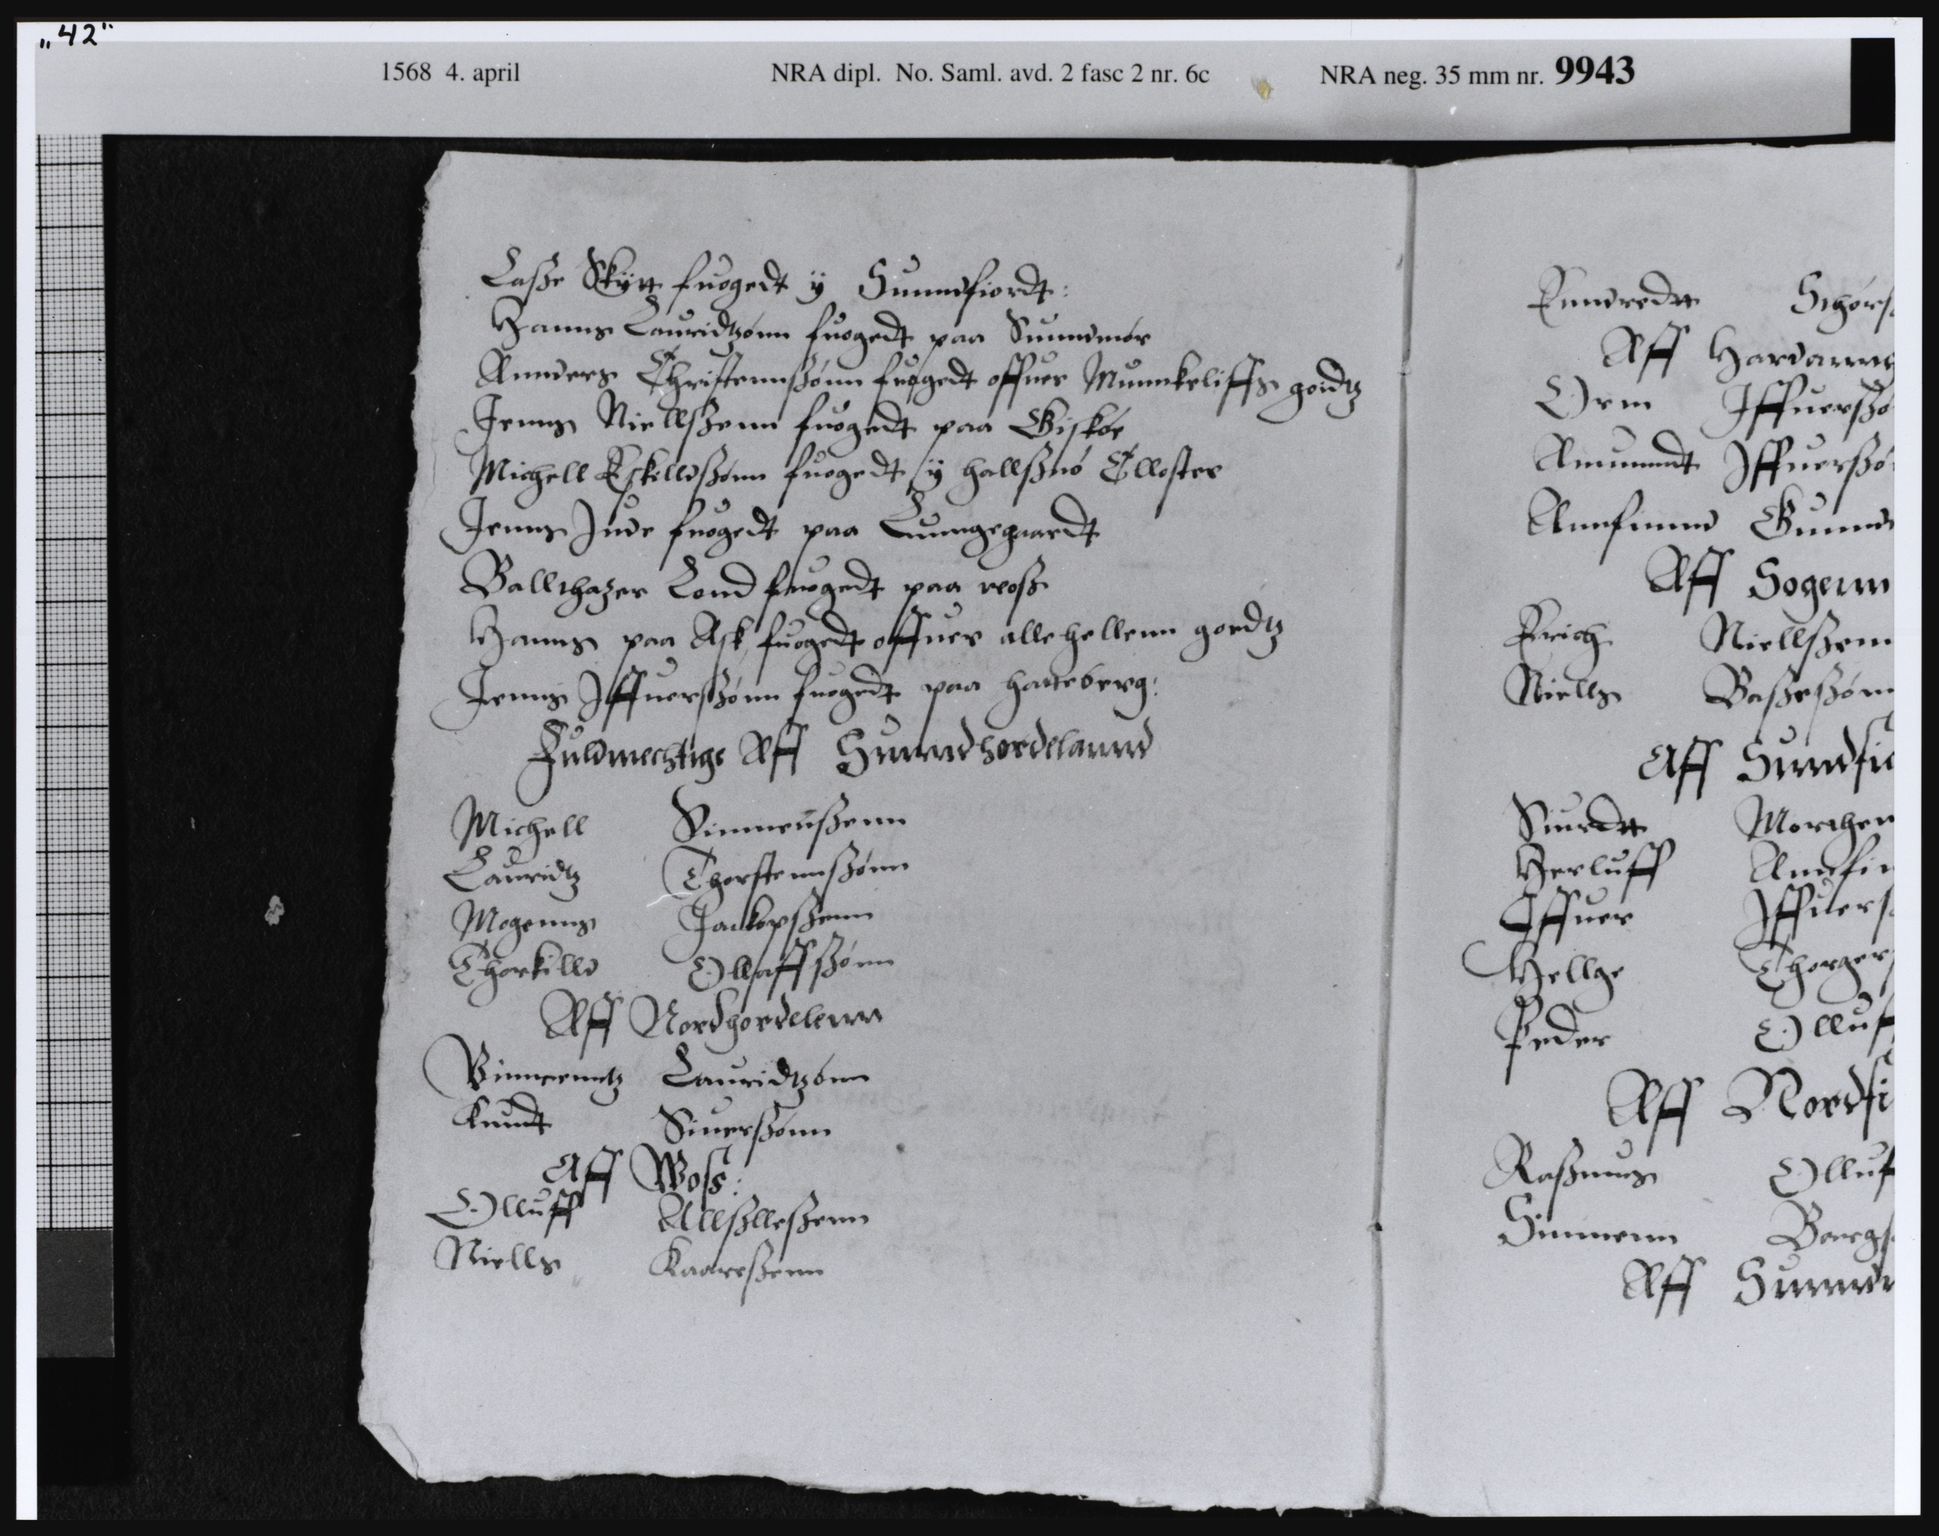 „42“
1568 4. april NRA dipl. No. Saml. avd. 2 fasc 2 nr. 6c NRA neg. 35 mm nr. 9943
Lasße Skytt fuogedt ÿ Sunndfiordt:
Hanns Lauridtzønn fuogedt paa Sunndmør
Annders Christennßønn fuogedt offuer Munnkeliffs goidtz
Jenns Niellßenn fuogedt paa Giskøe
Michell Eskelldßønn fuogedt ÿ hallßnø Closter
Jenns Jude fuogedt paa Lunngegaardt
Ballthazer Lond fuogedt paa voß
Hanns paa Ask fuogedt offuer allehellenn goedtz
Jenns Jffuerßønn fuogedt paa hatteberg:
Fuldmechtige Aff Sunndhordelannd
Michell Simmenßenn
Lauridtz Thorstennßønn
Mogenns Jackopßenn
Thorkilld Ollaffßønn
Aff Nordhordelenn
Vinncenntz Lauridtzønn
Knudt Siuerßønn
Aff Woss:
Olluff Allßleßenn
Niells Kaareßenn
Enndredtt
Aff Hardann
Orm Jffuerßø
Amunndt Jffuerßø
Annfinnd Gunnd
Aff Sogenn
Erich Niellßenn
Niells Baßeßønn
Aff Sundfio
Siurdtt Morthen
Herluff Annfin
Iffuer Jffuers
Hellge Thorgers
Peder Olluf
Aff Nordfi
Raßmus Olluf
Simmenn Børgs
Aff Sunndm